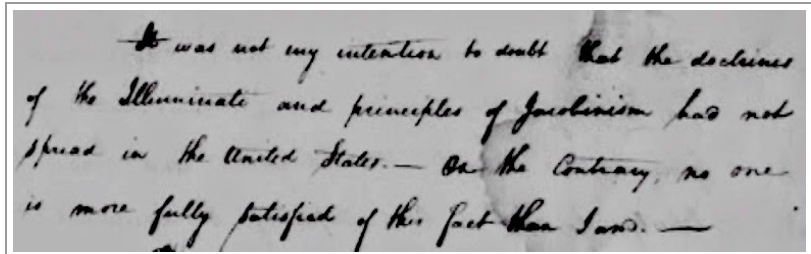 It was not my intention to doubt that the doctrines
of the Illuminate and principles of Jacobinism had not
spread in the United States. — On the Contrary, no one
is more fully satisfied of this fact than I am. —